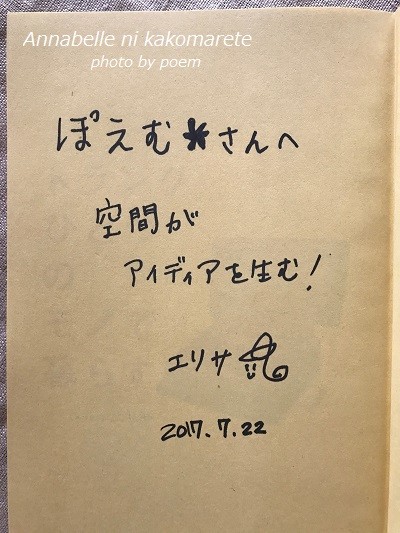 Annabelle ni kakomarete
photo by poem
ぽえむ*さんへ
空間が
アイディアを生む!
エリサ
2017.7.22